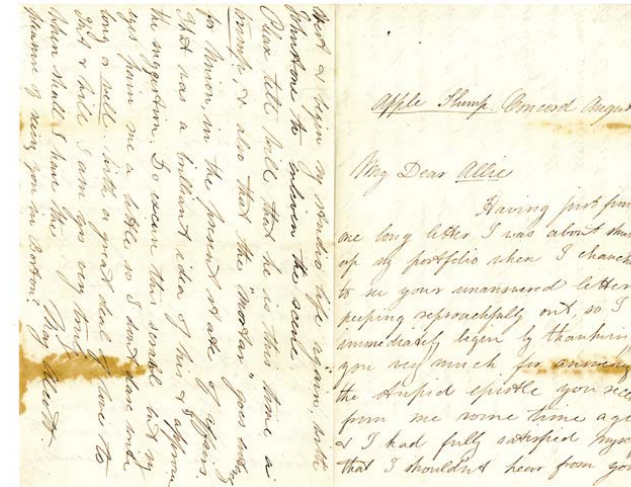 Apple Slump. Concord August
My Dear Allie
Having just fin
one long letter, I was about shut
up my portfolio when I chanced
to see your unanswered letter
peeping reproachfully out, so I
immediately begin by thanking
you very much for answering
the stupid epistle you rece
from me some time ago
& I had fully satisfied myse
that I shouldn't hear from you
next & begin my studio life again, with
Johnstone to enliven the scene
Please tell Will that he is this time, a
trump, & also that the "mortar" goes
for Union, in the present state of affairs.
that was a brilliant idea of his & I approve
the suggestion. Do excuse this scrawl but my
eyes pain me a little so I don't dare write
long a well. With a great deal of love to
& Will I am yrs very truly
When shall I have the May Alcott.
pleasure of seeing you in Boston?